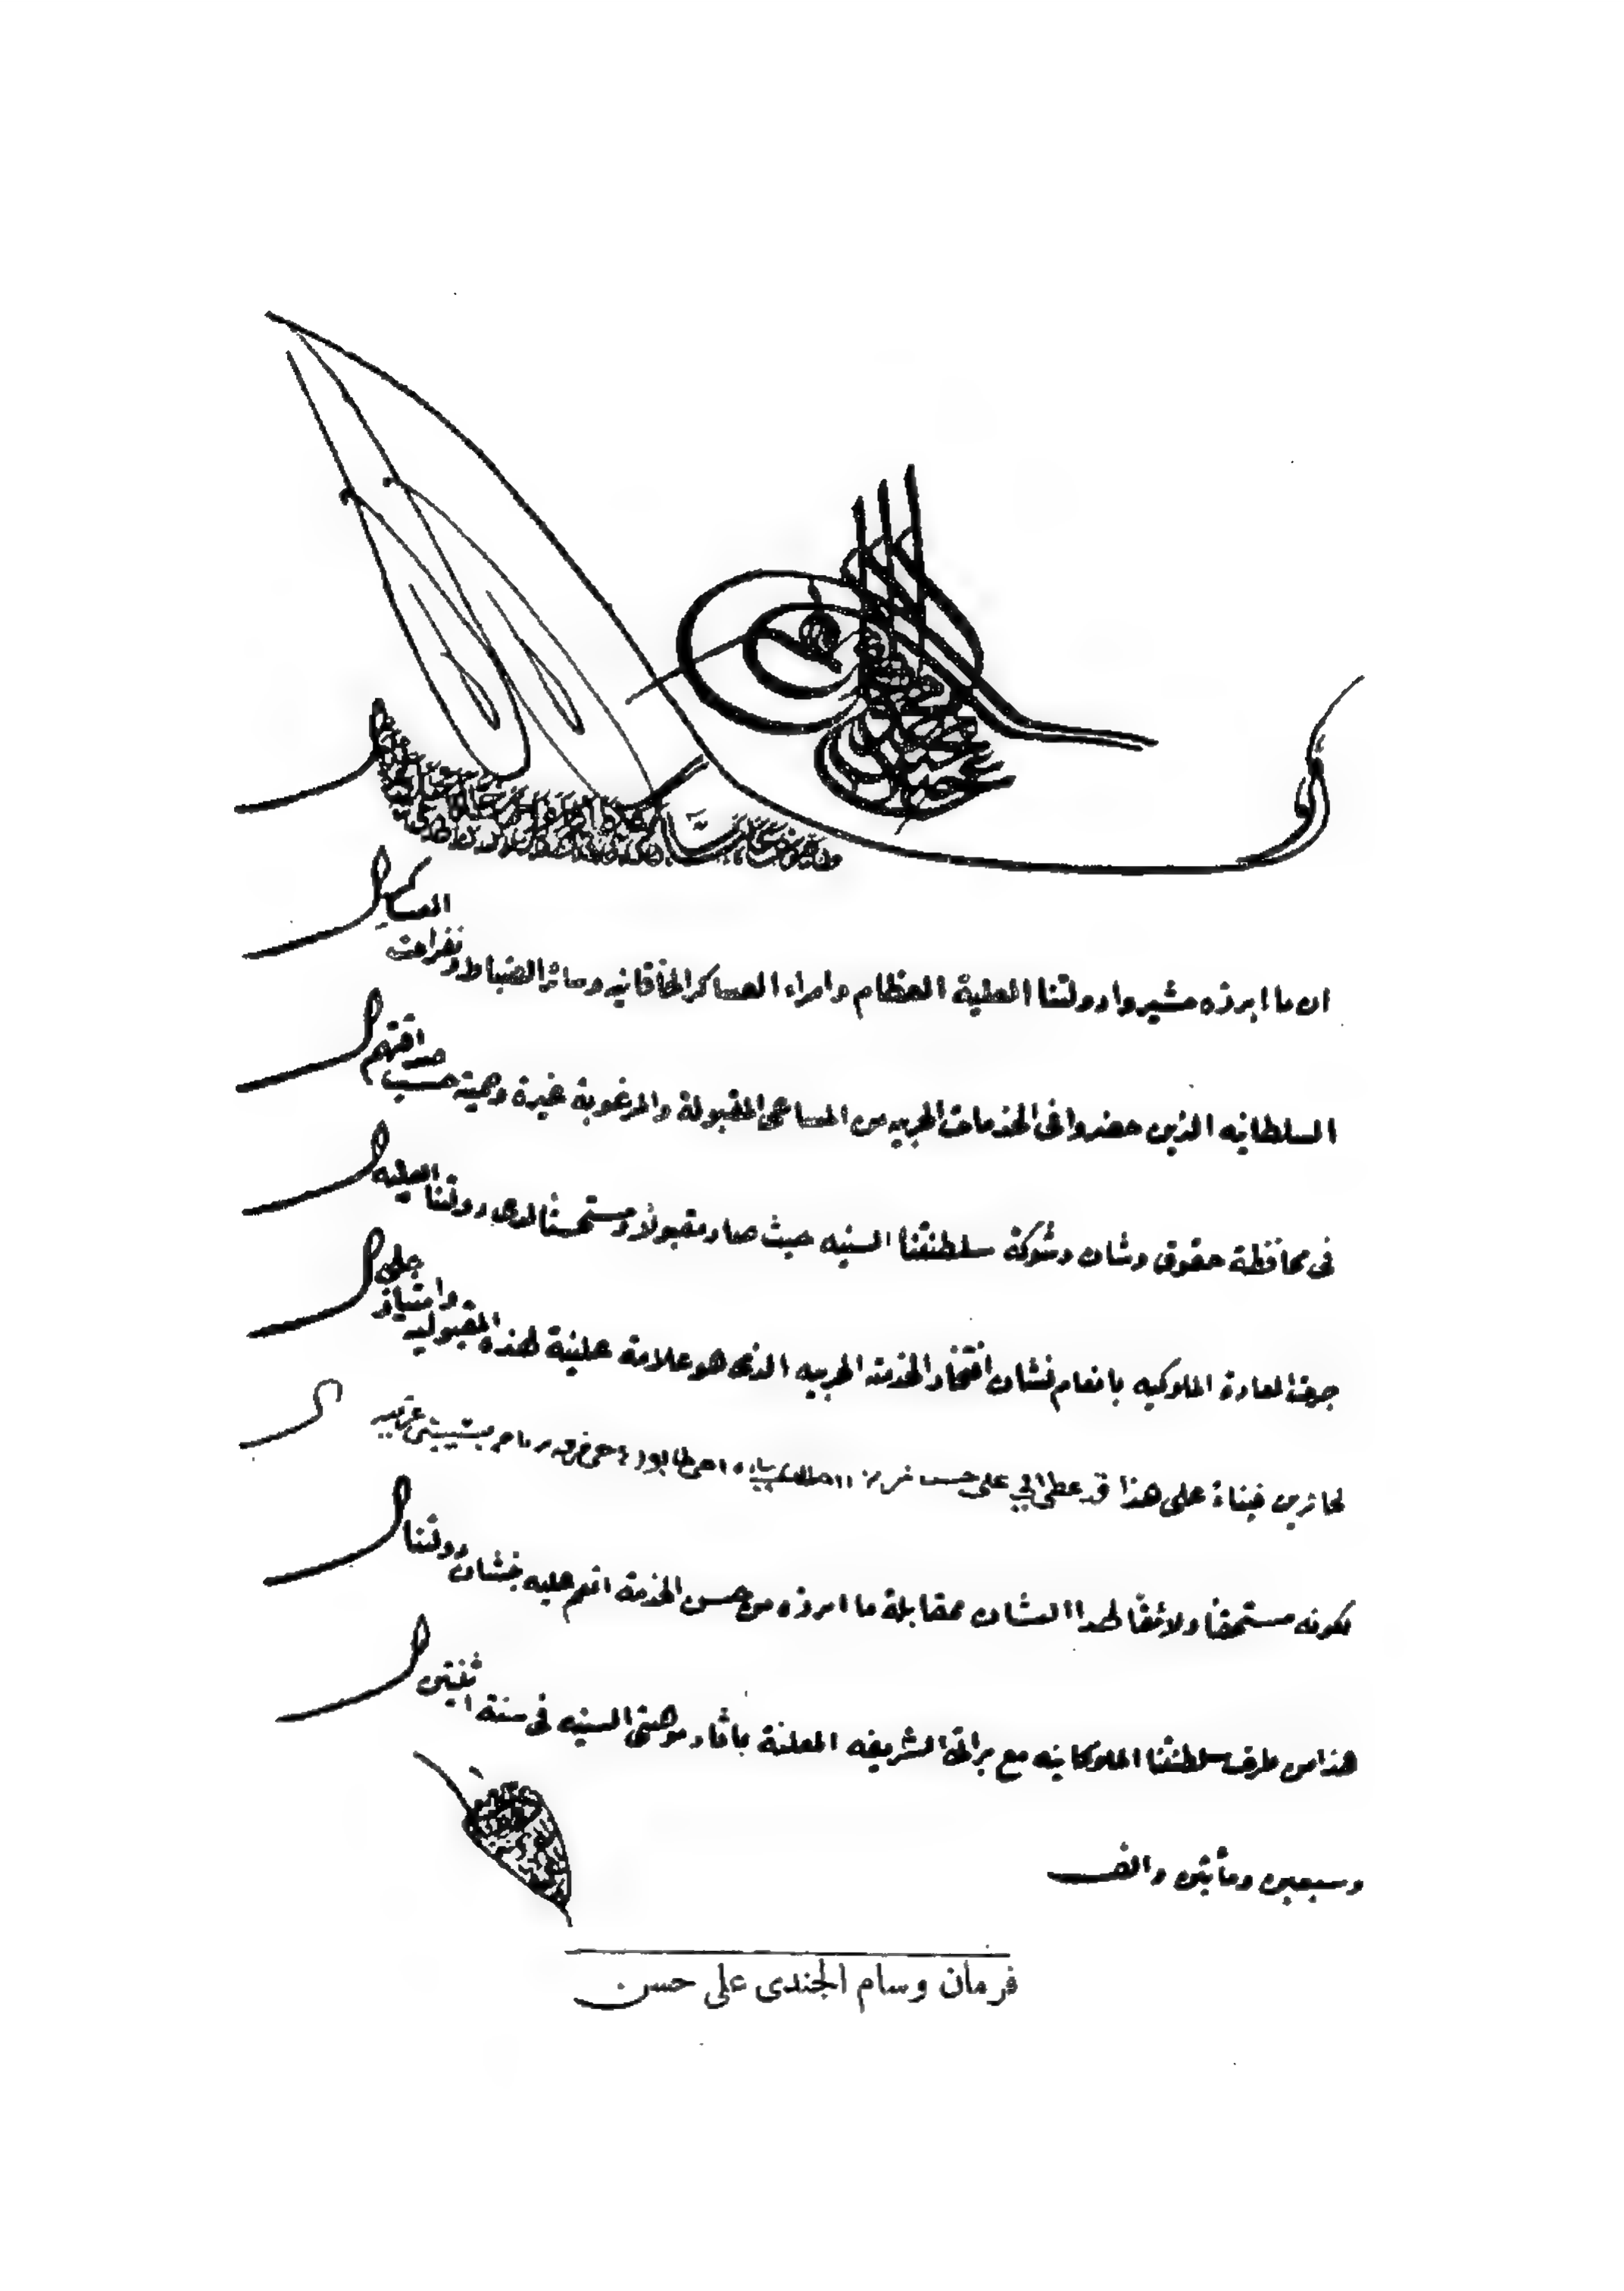 ان ما ابرزه مشيروا دولتنا العلية العظام وامراء العساكر الخاقانيه وسائر الضباط ونفرات العساكر
السلطانيه الذين حضروا فى الخدمات الحربيه من المساعى المقبولة والمرغوبة غيرة وحمية حسب صداقتهم
فى محافظة حقوق وشان وشوكة سلطنتنا السنيه حيث صار مقبولا ومستحسنا لدى دولتنا العليه
جرت العادة الملوكيه بانعام نشان افتخار الخدمة الحربيه الذى هو علامة علنية لهذه المقبوليه وامتياز جلى
لحائزين فبناءً على هذا قد عطى الى على حسن
لكونه مستحقا ولائقا لهذا النشان بمقابلة ما ابرزه من حسن الخدمة انعم عليه بنشان دولتنا
هذا من طرف سلطنتنا الملوكانيه مع براتى الشريفه المعلنة باثار موهبتى السنيه فى سنة اثنين
وسبعين ومأيتين والف
فرمان وسام الجندى على حسن